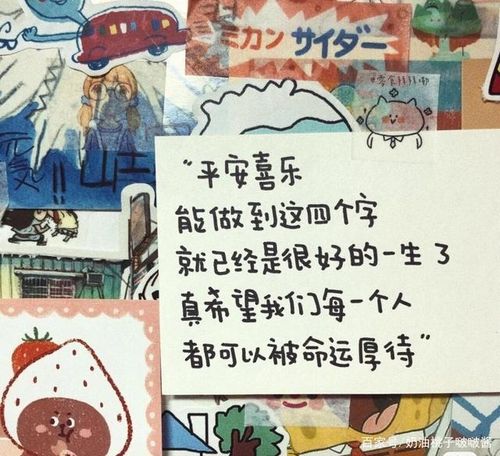 ミカン サイダー
"平安喜乐
能做到这四个字
就已经是很好的一生了
真希望我们每一个人
都可以被命运厚待"
百家号/奶油桃子啵啵酱